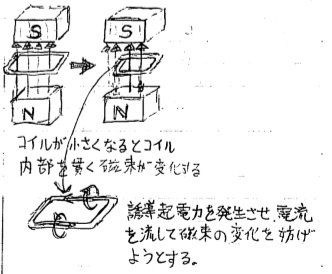 S
S
N
N
コイルが小さくなるとコイル
内部を貫く磁束が変化する
誘導起電力を発生させ、電流
を流して磁束の変化を妨げ
ようとする。